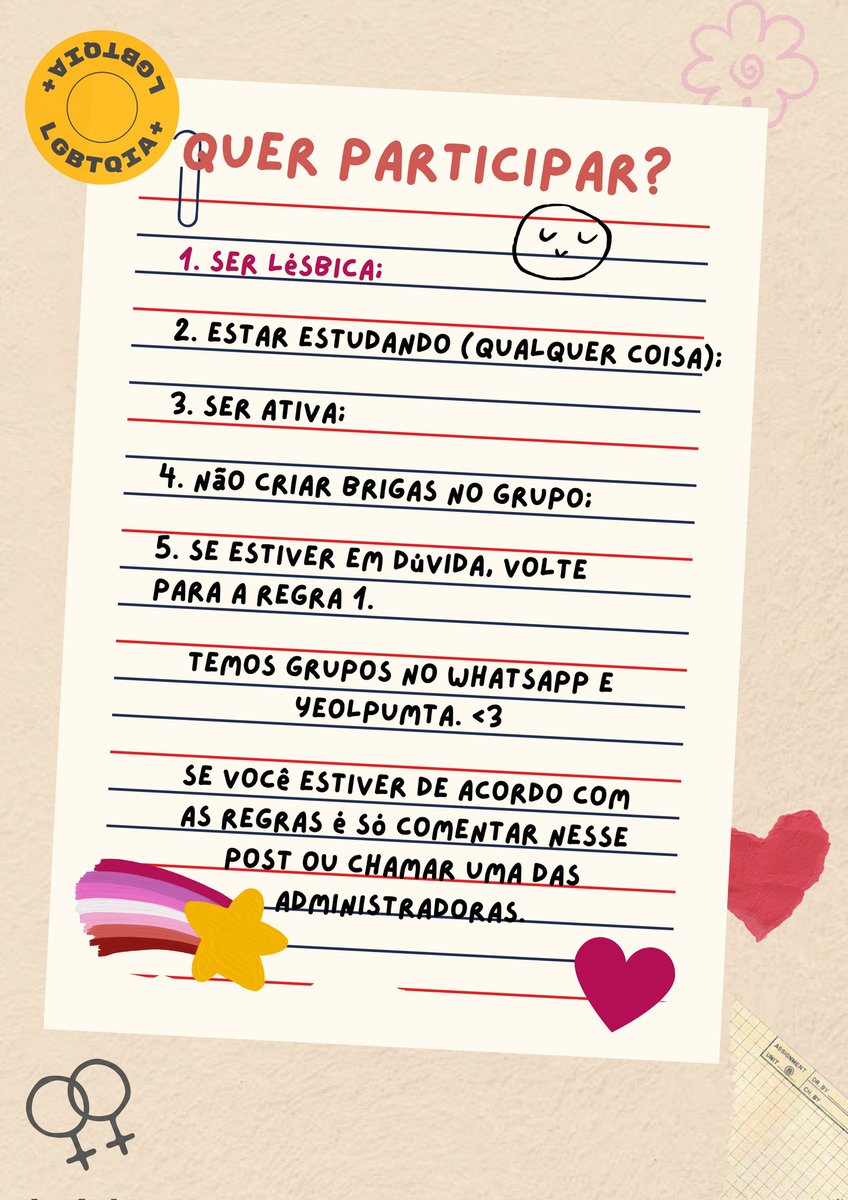 LGBTQIA+
LGBTQIA+
QUER PARTICIPAR?
1. SER LÉSBICA;
2. ESTAR ESTUDANDO (QUALQUER COISA);
3. SER ATIVA;
4. NÃO CRIAR BRIGAS NO GRUPO;
5. SE ESTIVER EM DÚVIDA, VOLTE
PARA A REGRA 1.
TEMOS GRUPOS NO WHATSAPP E
YEOLPUMTA. <3
SE VOCÊ ESTIVER DE ACORDO COM
AS REGRAS É SÓ COMENTAR NESSE
POST OU CHAMAR UMA DAS
ADMINISTRADORAS.
ASSIGNMENT
UNIT
DR BY
CH. BY